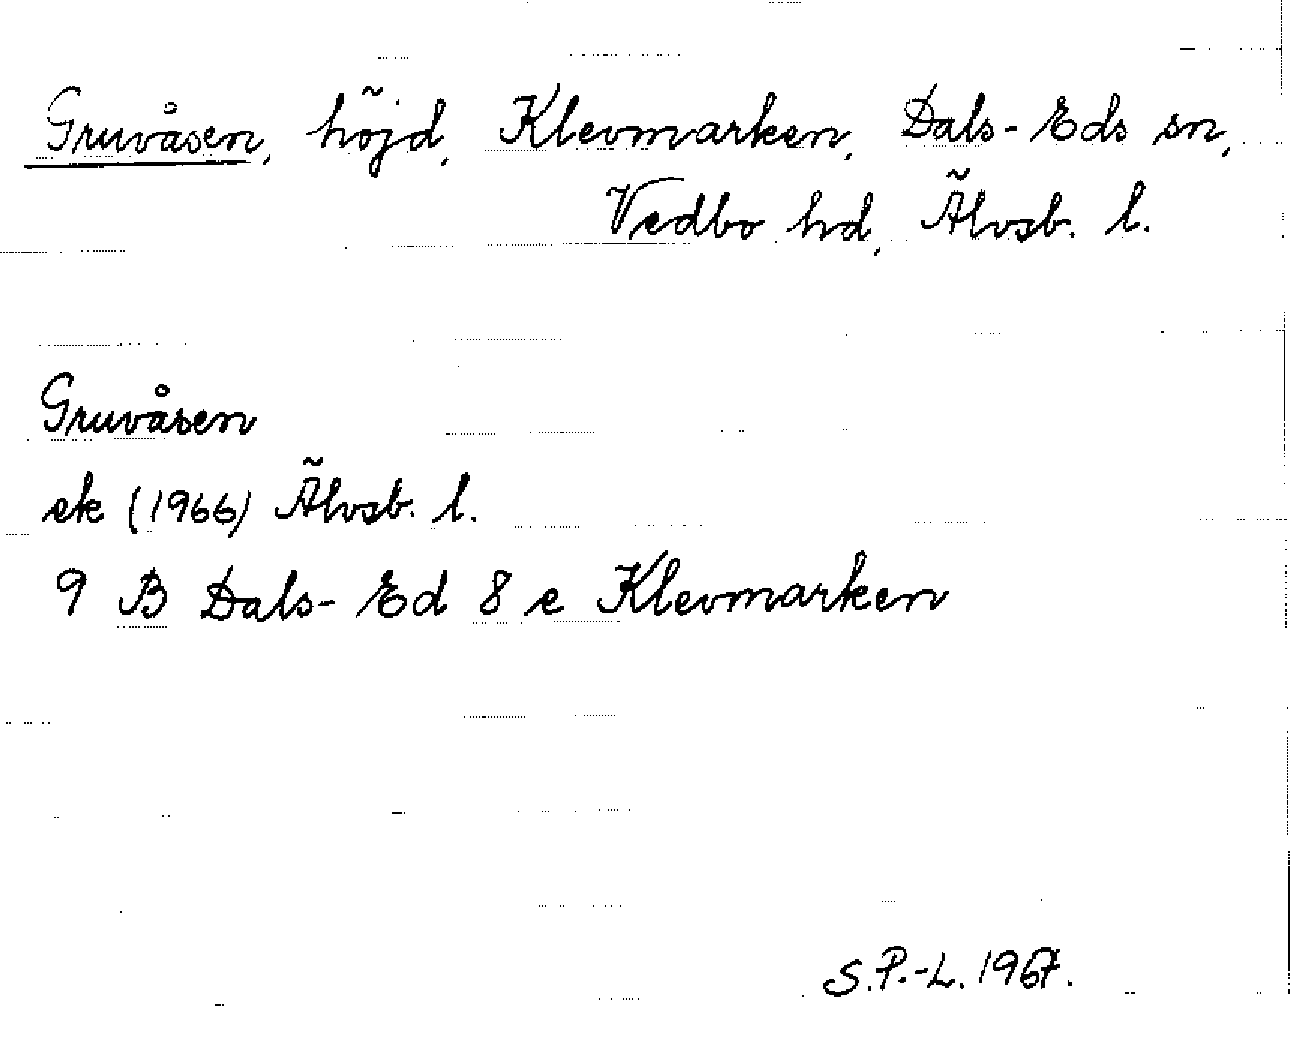 Gruvåsen, höjd, Klevmarken, Dals-Eds sn,
Vedbo hd, Älvsb. l.
Gruvåsen
ek (1966) Älvsb. l.
9 B Dals-Ed 8 e Klevmarken
S.P.-L. 1967.